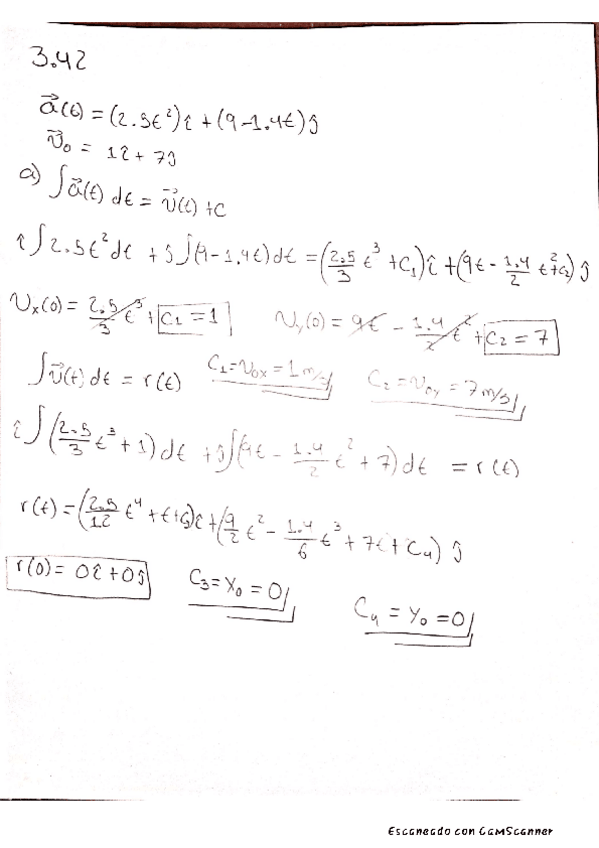 3.42
a⃗(t) = (2.5t²)î + (9-1.4t)ĵ
v⃗₀ = 1î + 7ĵ
a) ∫a⃗(t) dt = v⃗(t) + C
î∫2.5t²dt + ĵ∫(9-1.4t)dt = (2.5/3 t³ + C₁)î + (9t - 1.4/2 t² + C₂)ĵ
Vx(0) = 2.5/3 t³ + C₁ = 1 Vy(0) = 9t - 1.4/2 t² + C₂ = 7
∫v⃗(t) dt = r(t) C₁ = V₀x = 1 m/s C₂ = V₀y = 7 m/s
î∫(2.5/3 t³ + 1)dt + ĵ∫(9t - 1.4/2 t² + 7)dt = r(t)
r(t) = (2.5/12 t⁴ + t + C₃)î + (9/2 t² - 1.4/6 t³ + 7t + C₄)ĵ
r(0) = 0î + 0ĵ C₃ = X₀ = 0 C₄ = Y₀ = 0
Escaneado con CamScanner